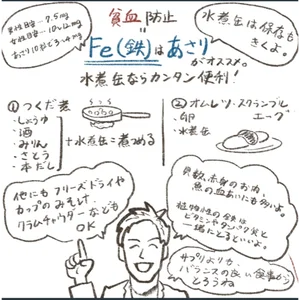 男性日安…7.5mg
女性日安…10〜12mg
あさり10コで3〜4mg
貧血防止
水煮缶は保存も
きくよ。
Fe(鉄)はあさり
がオススメ。
水煮缶ならカンタン便利!
①つくだ煮
・しょうゆ
・酒
・みりん
・さとう
・本だし
+水煮缶で煮つめる
②オムレツ・スクランブル
エッグ
・卵
・水煮缶
他にもフリーズドライや
カップのみそ汁、
クラムチャウダーなども
OK
貝類、赤身のお肉、
魚の血あいにも多いよ。
植物性の鉄は
ビタミンやタンパク質と
一緒にとるといいよ。
サプリよりも
バランスの良い食事から
とろうね